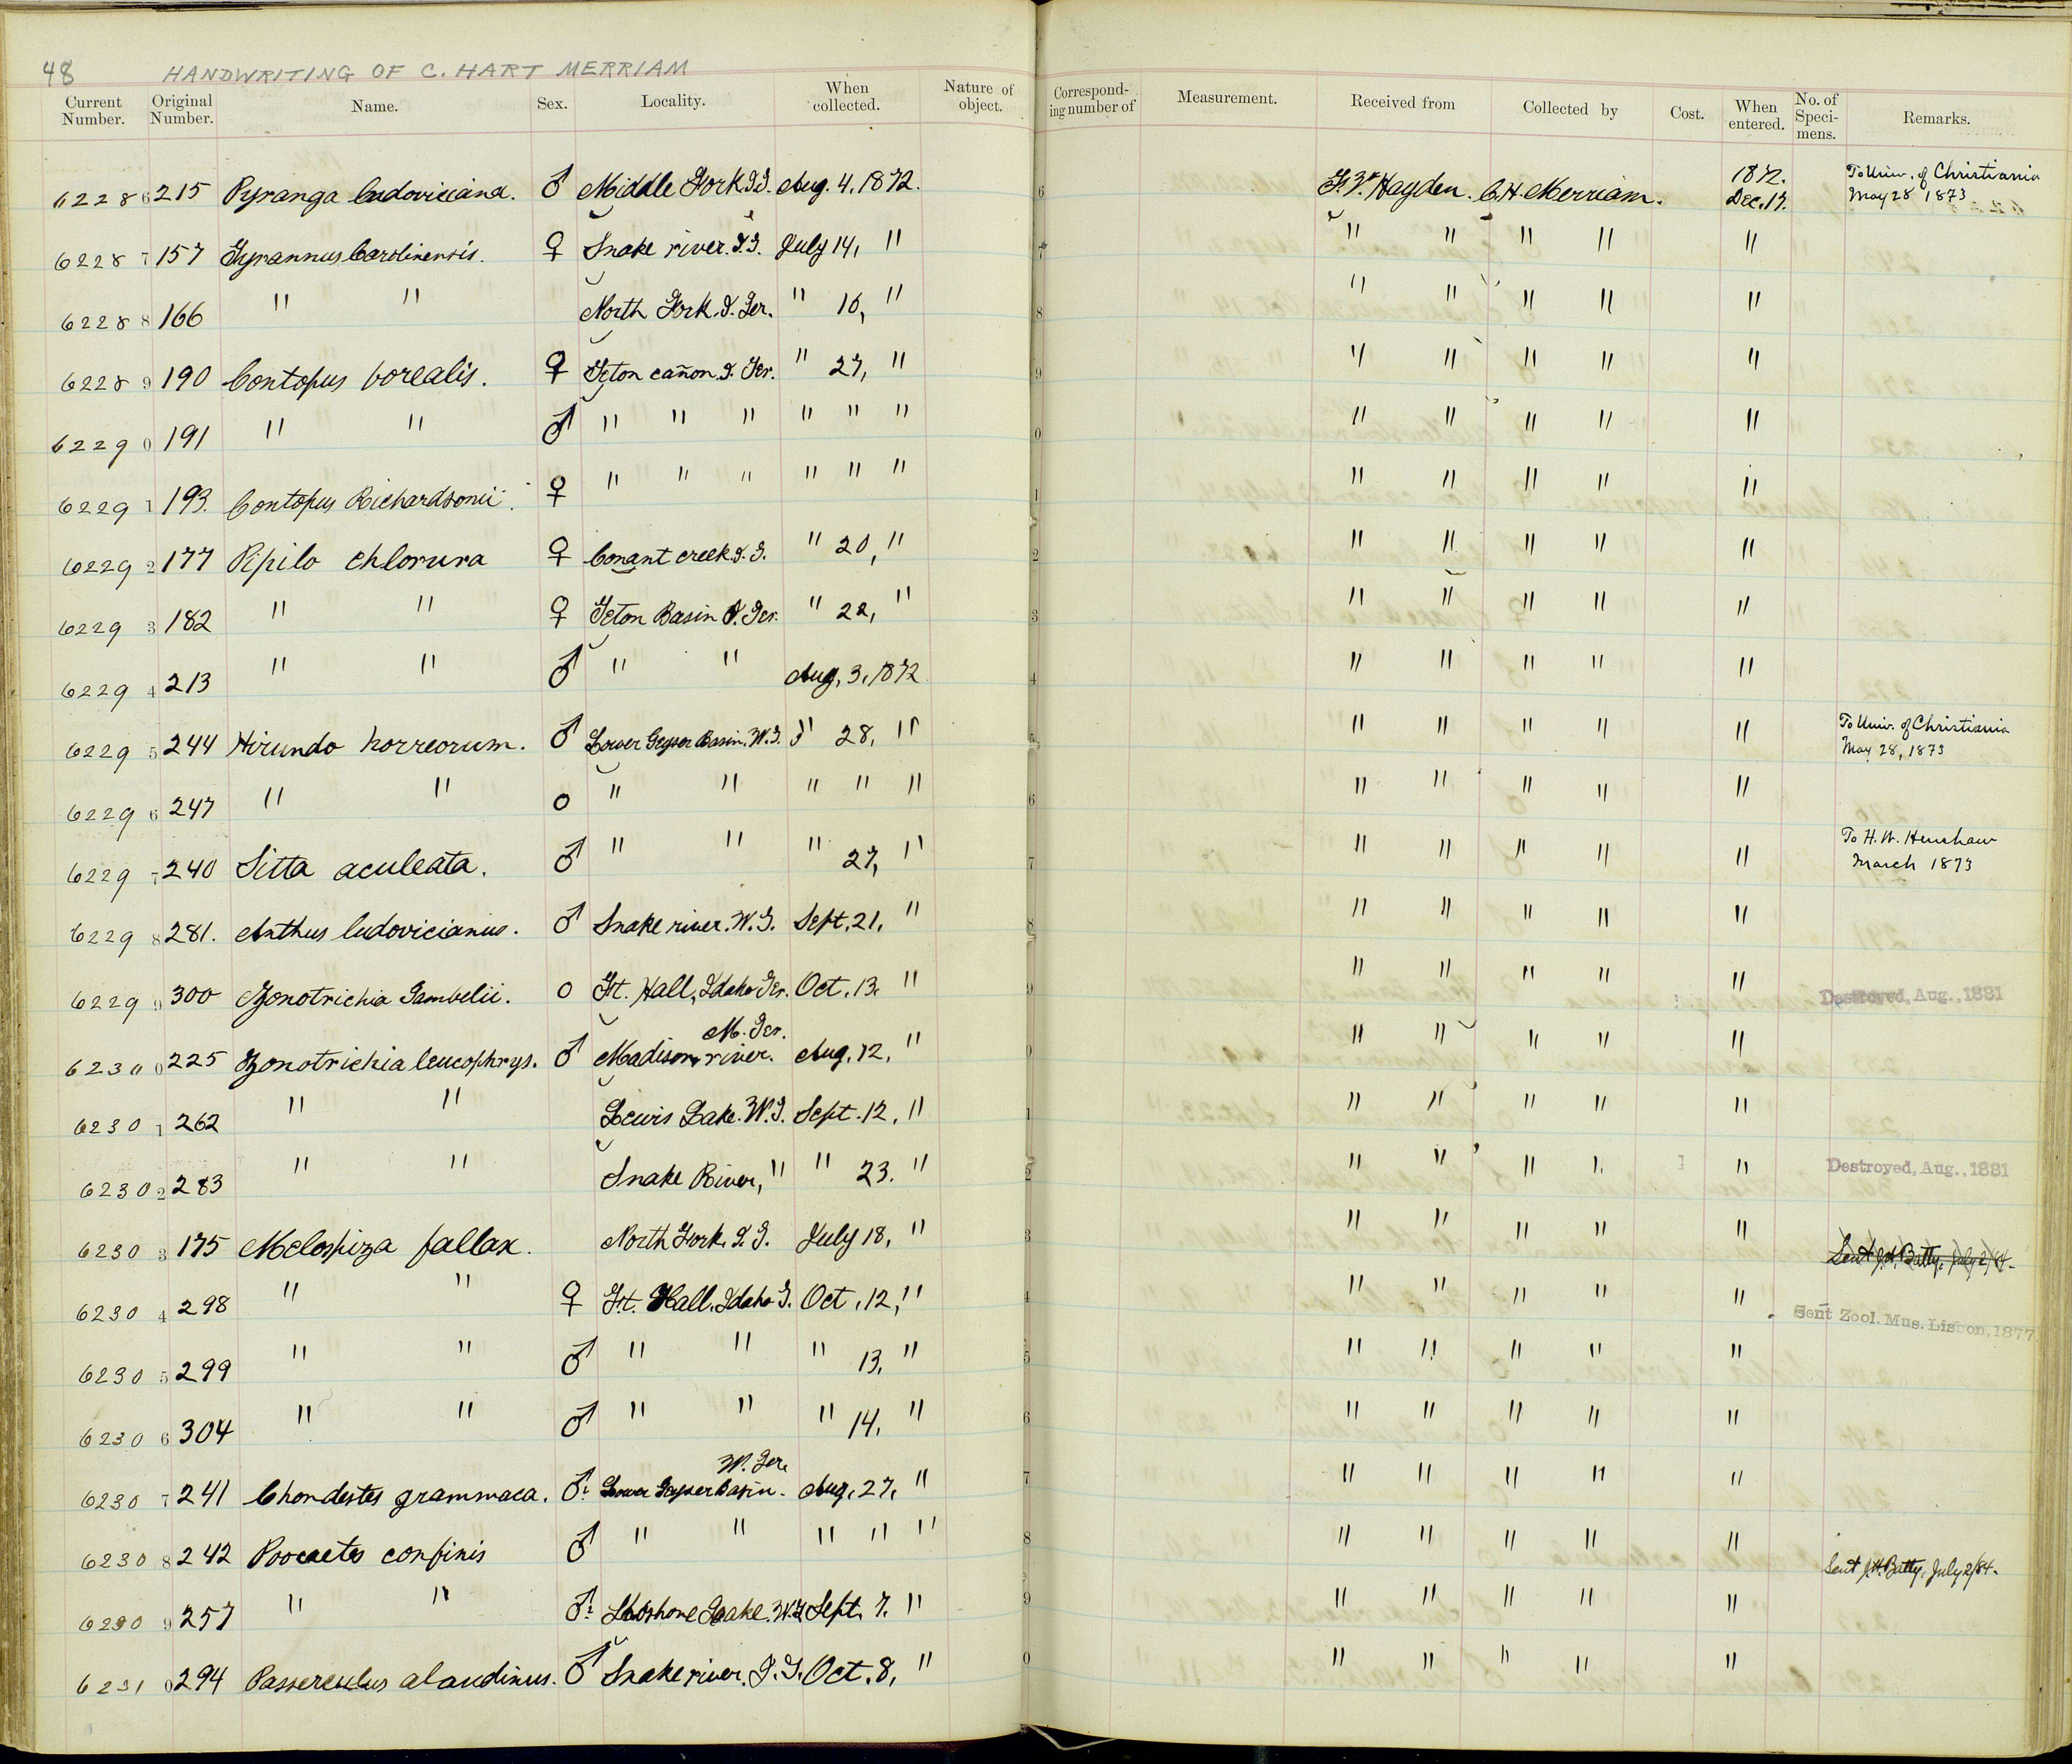 48 HANDWRITING OF C. HART MERRIAM
Current Number. Original Number. Name. Sex. Locality. When collected. Nature of object. Correspond-ing number of Measurement. Received from Collected by Cost. When entered. No. of Speci-mens. Remarks.
62286 215 Pyranga ludoviciana. ♂ Middle Fork I.T. Aug. 4, 1872. 6 F. V. Hayden. C. H. Merriam. 1872. Dec. 17. To Univ. of Christiania May 28 1873
62287 157 Tyrannus Carolinensis. ♀ Snake river. I.T. July 14, " 7 " " " " "
62288 166 " " North Fork. I. Ter. " 16, " 8 " " " " "
62289 190 Contopus borealis. ♀ Teton cañon. I. Ter. " 27, " 9 " " " " "
62290 191 " " ♂ " " " " " " 0 " " " " "
62291 193. Contopus Richardsonii. ♀ " " " " " " 1 " " " " "
62292 177 Pipilo chlorura ♀ Conant creek I. T. " 20, " 2 " " " " "
62293 182 " " ♀ Teton Basin I. Ter. " 22, " 3 " " " " "
62294 213 " " ♂ " " Aug. 3, 1872 4 " " " " "
62295 244 Hirundo horreorum. ♂ Lower Geyser Basin. W.T. " 28, " 5 " " " " " To Univ. of Christiania May 28, 1873
62296 247 " " o " " " " " 6 " " " " "
62297 240 Sitta aculeata. ♂ " " " 27, " 7 " " " " " To H. W. Henshaw March 1873
62298 281. Anthus ludovicianus. ♂ Snake river. W. T. Sept. 21, " 8 " " " " "
62299 300 Zonotrichia Gambelii. o Ft. Hall, Idaho Ter. Oct. 13. " 9 " " " " " Destroyed, Aug., 1881
62300 225 Zonotrichia leucophrys. ♂ Madison river. M. Ter. Aug. 12, " 0 " " " " "
62301 262 " " Lewis Lake. W.T. Sept. 12, " 1 " " " " "
62302 283 " " Snake River, " " 23. " 2 " " " " " Destroyed, Aug., 1881
62303 175 Melospiza fallax. North Fork, I. T. July 18, " 3 " " " " " Sent J.H. Batty, July 2/84.
62304 298 " " ♀ Ft. Hall. Idaho T. Oct. 12, " 4 " " " " " Sent Zool. Mus. Lisbon, 1877
62305 299 " " ♂ " " " 13, " 5 " " " " "
62306 304 " " ♂ " " " 14, " 6 " " " " "
62307 241 Chondestes grammaca. ♂? Lower Geyser Basin. W. Ter. Aug. 27, " 7 " " " " "
62308 242 Poocaetes confinis ♂ " " " " " 8 " " " " " Sent J.H. Batty, July 2/84.
62309 257 " " ♂? Shoshone Lake. W.T. Sept. 7. " 9 " " " " "
62310 294 Passerculus alaudinus. ♂ Snake river. I. T. Oct. 8, " 0 " " " " "